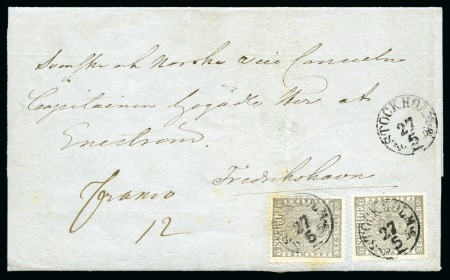 Svenske och Norske vice Consuln
Capitainen Högädle Herr A
Eneström
Fredrikshavn
franco
12
STOCKHOLM
27
5
STOCKHOLM
27
5
STOCKHOLM
27
5